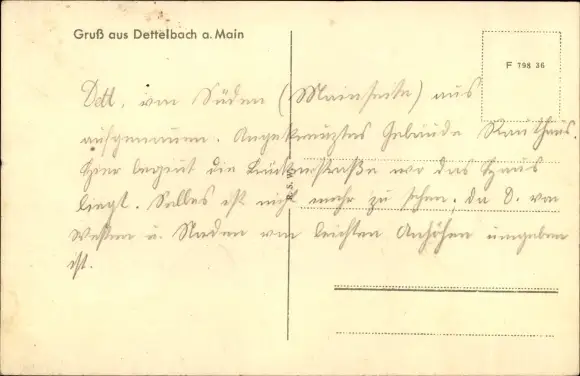 Gruß aus Dettelbach a. Main
F 798 36
Dett. von Süden (Mainseite) aus
aufgenommen. Angekreuztes Gebäude
Hier beginnt die wo das Haus
liegt. Selbes ist nicht mehr zu sehen, da D. von
Westen u. Norden von leichten Anhöhen umgeben
ist.